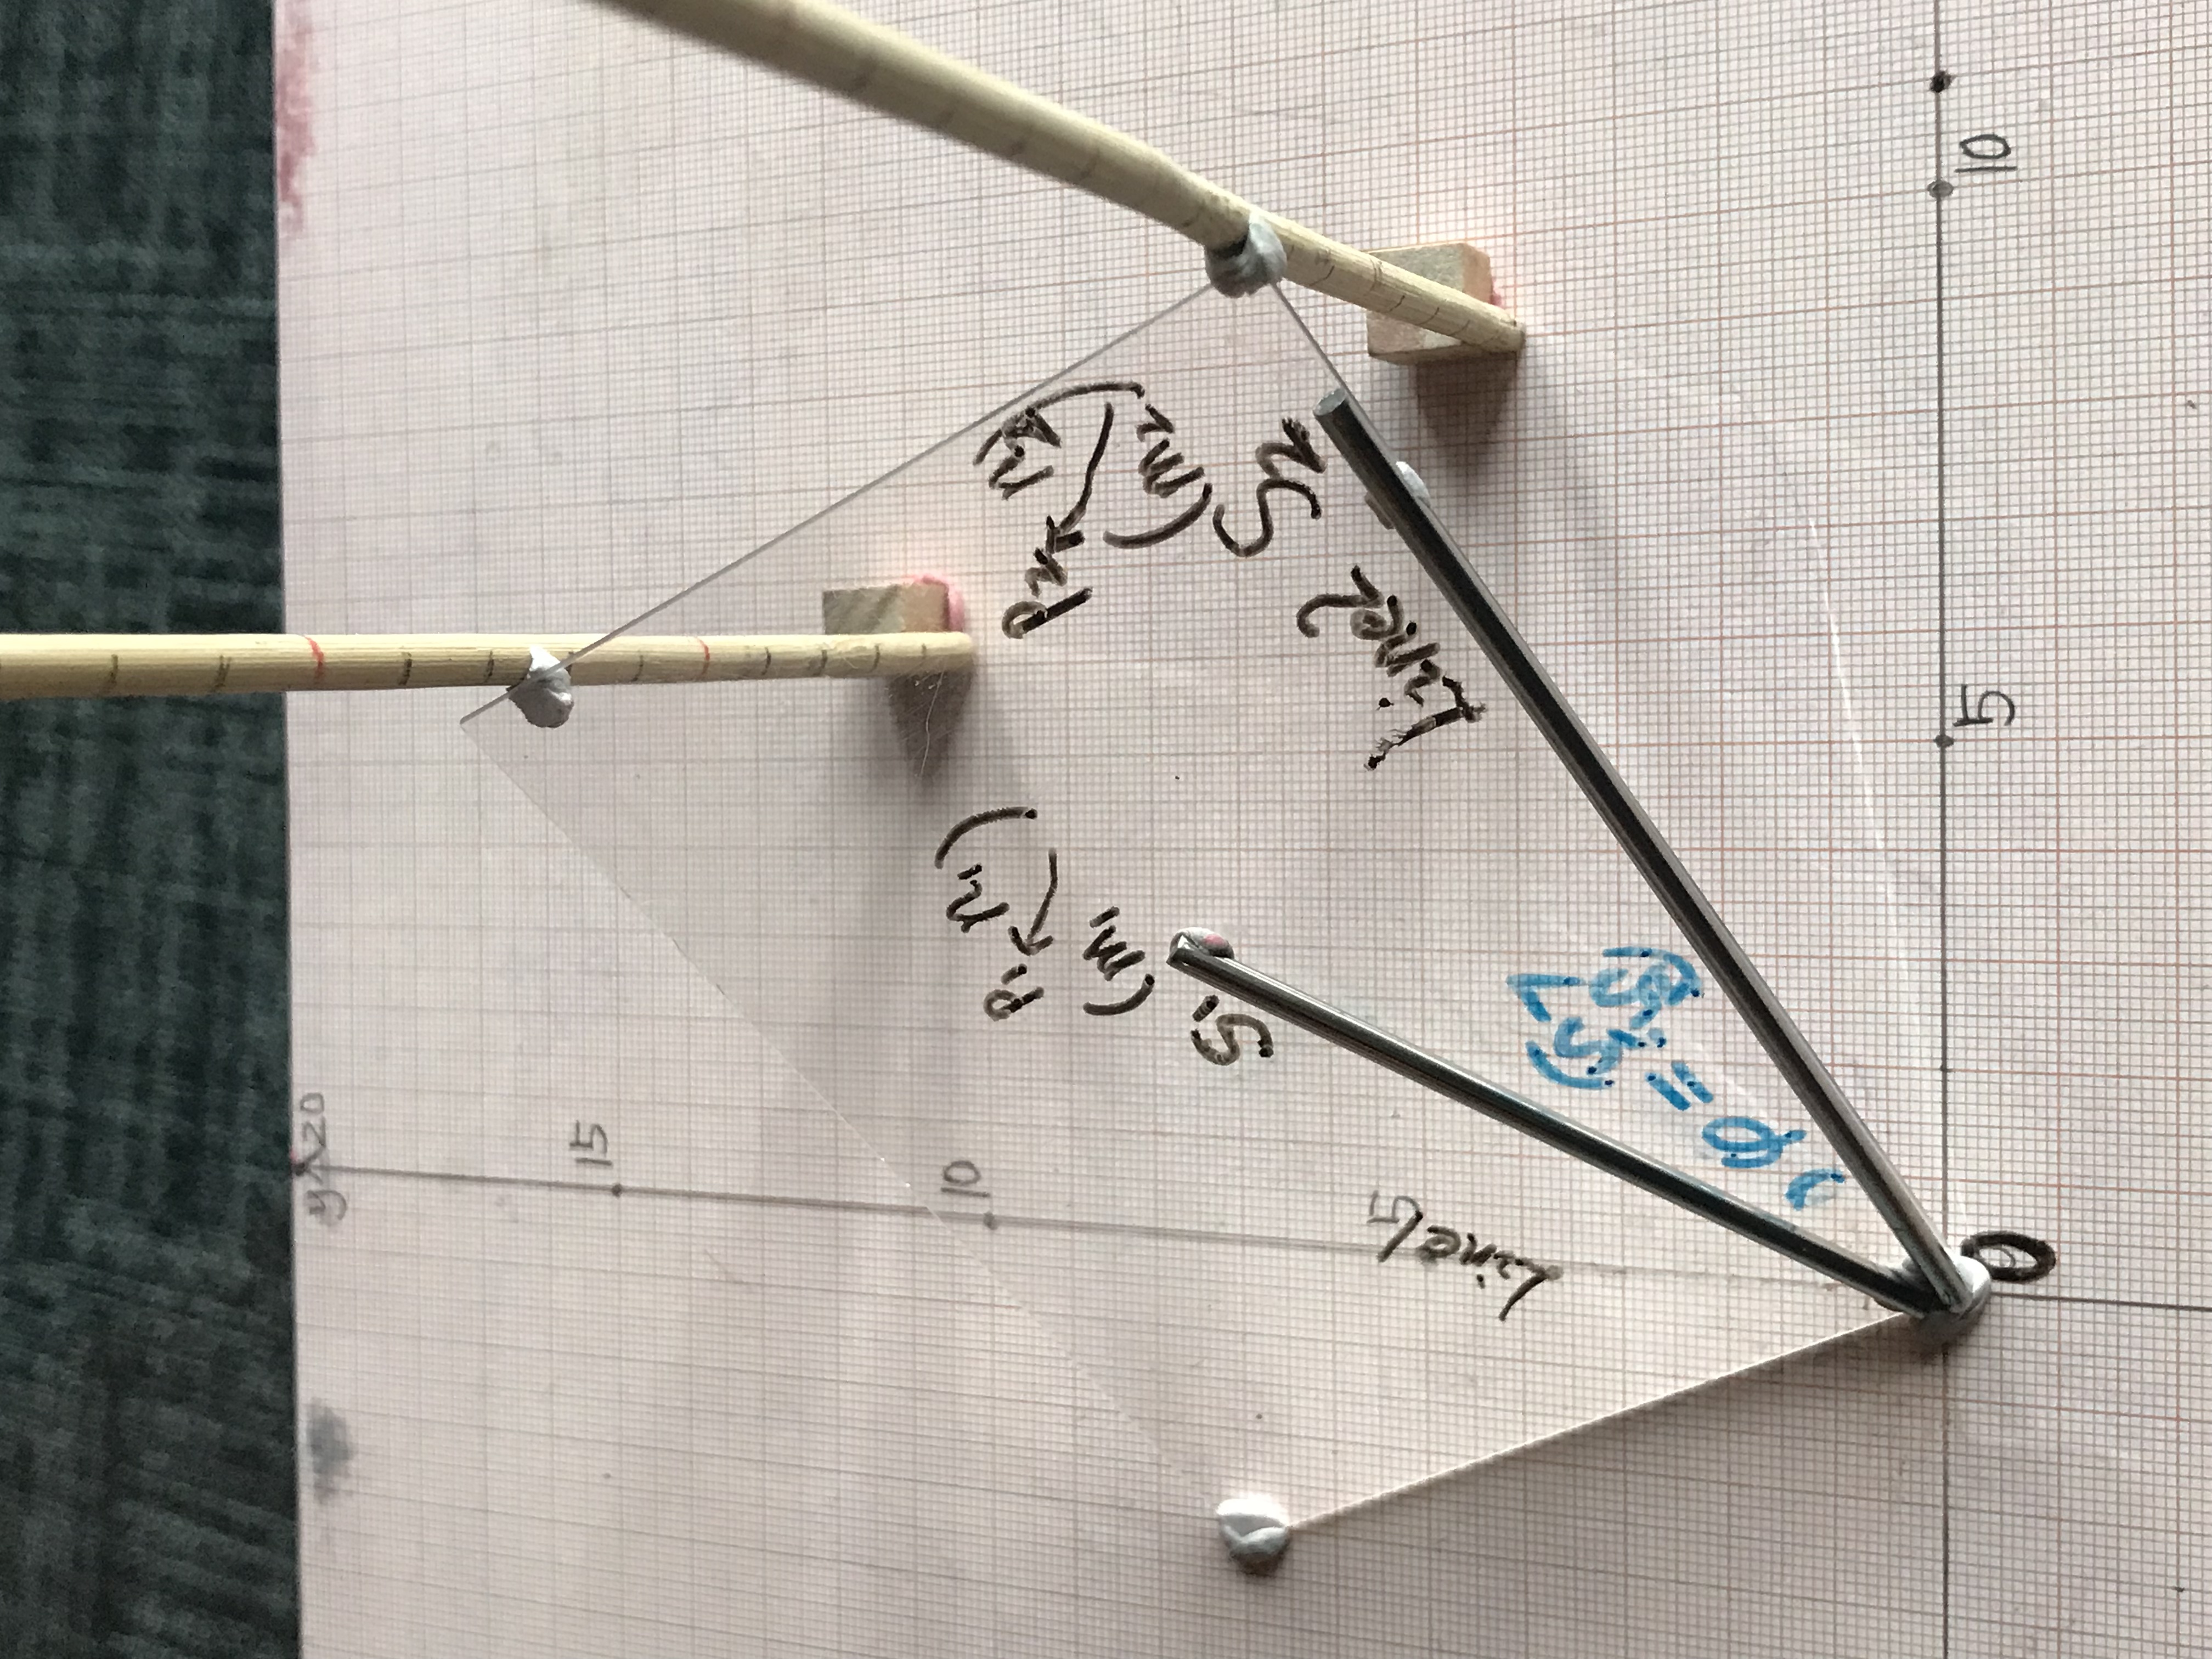 y 20
15
10
P₁ n₁)
(m₁
S₁
P₂ n₂)
(m₂
S₂
Line2
Line1
5
φ = ∠(S₁,S₂)
0
5
10